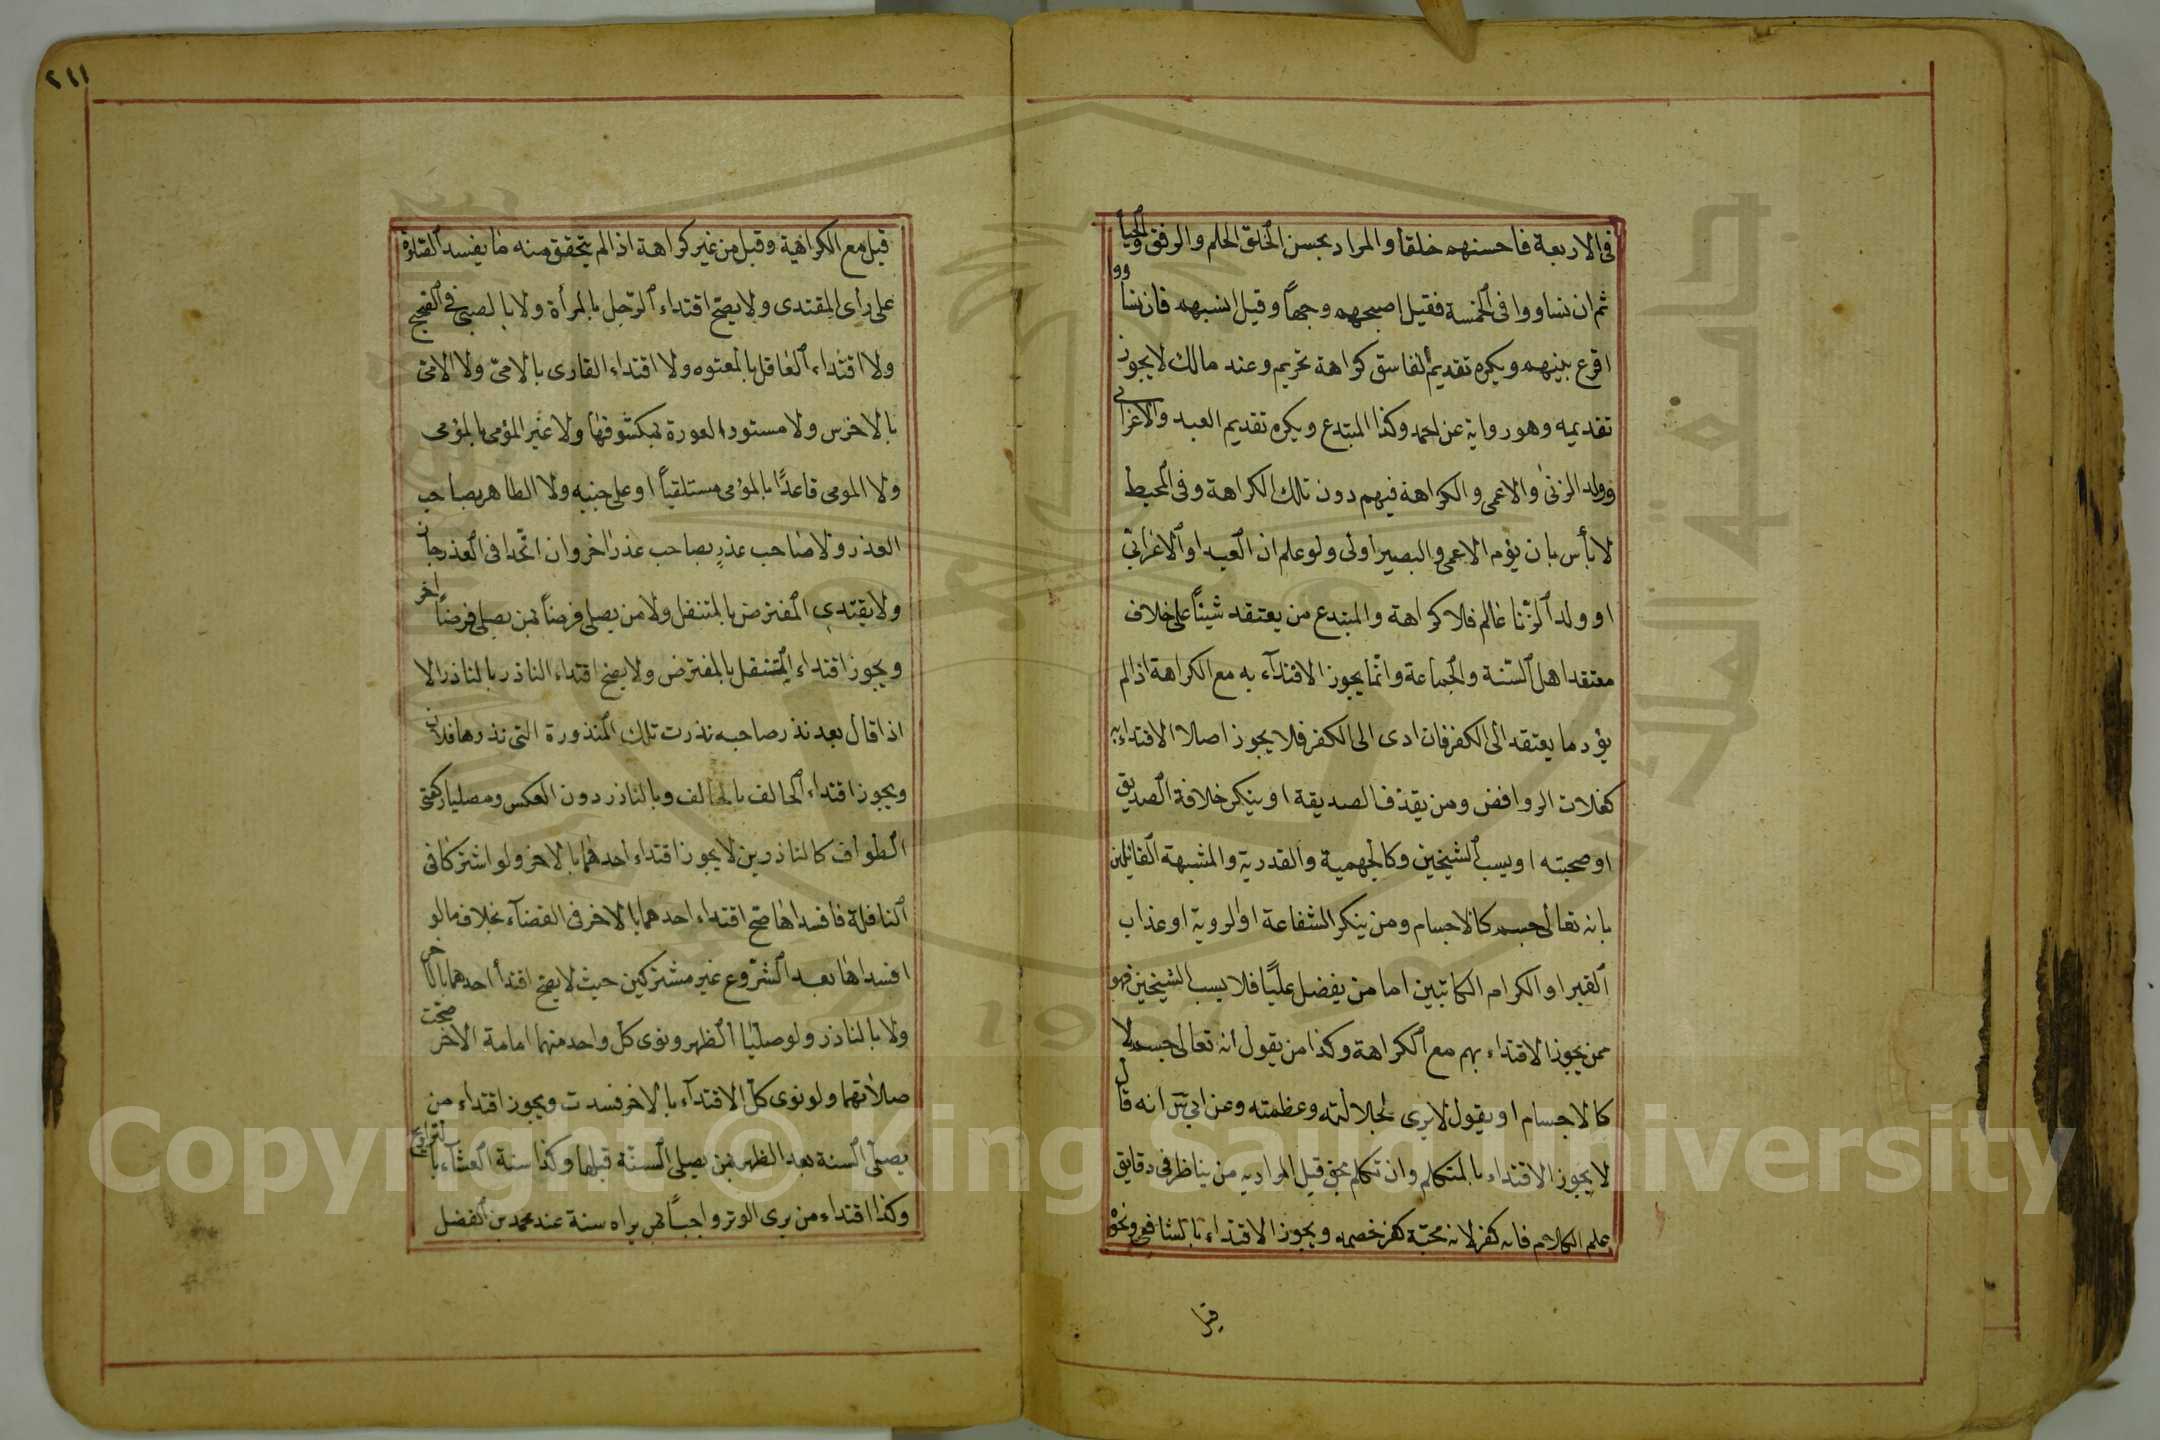 فى الاربعة فاحسنهم خلقا والمراد بحسن الخلق الحلم والرفق والحيا
ثم ان تساووا فى الخمسة فقيل اصبحهم وجهاً وقيل انسبهم فان تساووا
اقرع بينهم ويكره تقديم الفاسق كراهة تحريم وعند مالك لا يجوز
تقديمه وهو رواية عن احمد وكذا المبتدع ويكره تقديم العبد والاعرابى
وولد الزنى والاعمى والكراهة فيهم دون تلك الكراهة وفى المحيط
لا بأس بان يؤم الاعمى والبصير اولى ولو علم ان العبد او الاعرابىّ
او ولد الزنا عالم فلا كراهة والمبتدع من يعتقد شيئاً على خلاف
معتقد اهل السّنة والجماعة وانّما يجوز الاقتدآء به مع الكراهة اذا لم
يؤد ما يعتقد الى الكفر فان ادى الى الكفر فلا يجوز اصلا الاقتداء به
كغلات الروافض ومن يقذف الصديقة او ينكر خلافة الصديق
او صحبته او يسب الشيخين وكالجهمية والقدرية والمشبهة القائلين
بانه تعالى جسم كالاجسام ومن ينكر الشفاعة او الروية او عذاب
القبر او الكرام الكاتبين اما من يفضل عليًا فلا يسب الشيخين فهو
ممن يجوز الاقتداء بهم مع الكراهة وكذا من يقول انه تعالى جسم لا
كالاجسام او يقول لا يرى لجلالته وعظمته وعن ابى س انه قال
لا يجوز الاقتداء بالمتكلم وان تكلم بحق قيل المراد به من يناظر فى دقايق
علم الكلام فانه كفر لانه محبّة كفر خصمه ويجوز الاقتداء بالشافعى ونحوه
قيل مع الكراهية وقيل من غير كراهة اذا لم يتحقق منه ما يفسد الصلوة
على رأى المقتدى ولا يصح اقتداء الرّجل بالمرأة ولا بالصبى فى الصحيح
ولا اقتداء العاقل بالمعتوه ولا اقتداء القارى بالامىّ ولا الامىّ
بالاخرس ولا مستور العورة بمكشوفها ولا غير المؤمى بالمؤمى
ولا المومى قاعدًا بالمؤمى مستلقياً او على جنبه ولا الطاهر بصاحب
العذر ولا صاحب عذرٍ بصاحب عذر اخر وان اتّحدا فى العذر جاز
ولا يقتدى المفترض بالمتنفل ولا من يصلى فرضاً بمن يصلى فرضاً اخر
ويجوز اقتداء المتنفل بالمفترض ولا يصح اقتداء الناذر بالناذر الا
اذا قال بعد نذر صاحبه نذرت تلك المنذورة التى نذرها فلان
ويجوز اقتداء الحالف بالحالف وبالناذر دون العكس ومصليا ركعتى
الطواف كالناذرين لا يجوز اقتداء احدهما بالاخر ولو اشتركا فى
النافلة فافسداها صح اقتداء احدهما بالاخر فى القضآء بخلاف ما لو
افسداها بعد الشروع غير مشتركين حيث لا يصح اقتدأ احدهما بالاخر
ولا بالناذر ولو صليا الظهر ونوى كل واحد منهما امامة الاخر صحت
صلاتهما ولو نوى كلّ الاقتدآء بالاخر فسدت ويجوز اقتداء من
يصلى السنة بعد الظهر بمن يصلى السنّة قبلها وكذا سنة العشاء بالتراويح
وكذا اقتداء من يرى الوتر واجباً بمن يراه سنة عند محمد بن الفضل